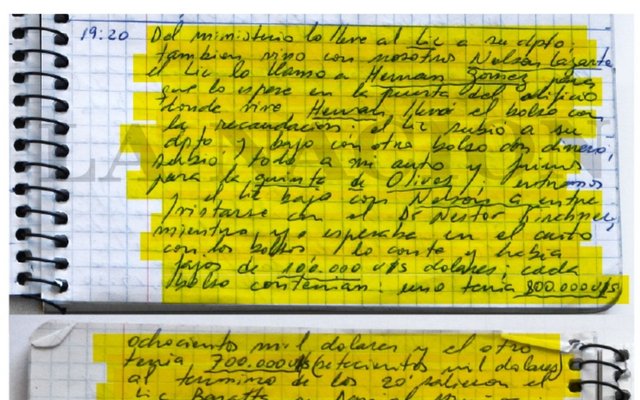 19:20 Del ministerio lo lleve al Lic a su dpto,
tambien vino con nosotros Nelson Lazarte
el Lic lo llamo a Hernan Gomez para
que lo espere en la puerta del edificio
donde vive Hernan, llevó el bolso con
la recaudacion; el Lic subio a su
dpto y bajo con otro bolso con dinero,
subio todo a mi auto y fuimos
para la quinta de Olivos, entramos
y el Lic bajo con Nelson a entre
vistarse con el Dr Nestor Kirchner,
mientras yo esperaba en el auto
con los bolsos lo conte y habia
fajos de 100.000 u/s dolares, cada
bolso contenian: uno tenia 800.000 u/s
ochocientos mil dolares y el otro
tenia 700.000 u/s (setecientos mil dolares)
al termino de los 20' salieron el
Lic Baratta
LA NACION